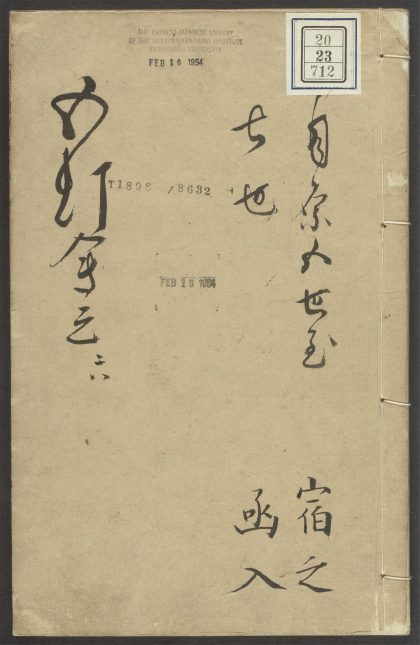 THE CHINESE-JAPANESE LIBRARY
OF THE HARVARD-YENCHING INSTITUTE
AT HARVARD UNIVERSITY
FEB 16 1954
20
23
712
青原五世至
七世
宿之
函入
五灯会元 六
/8632
FEB 1954